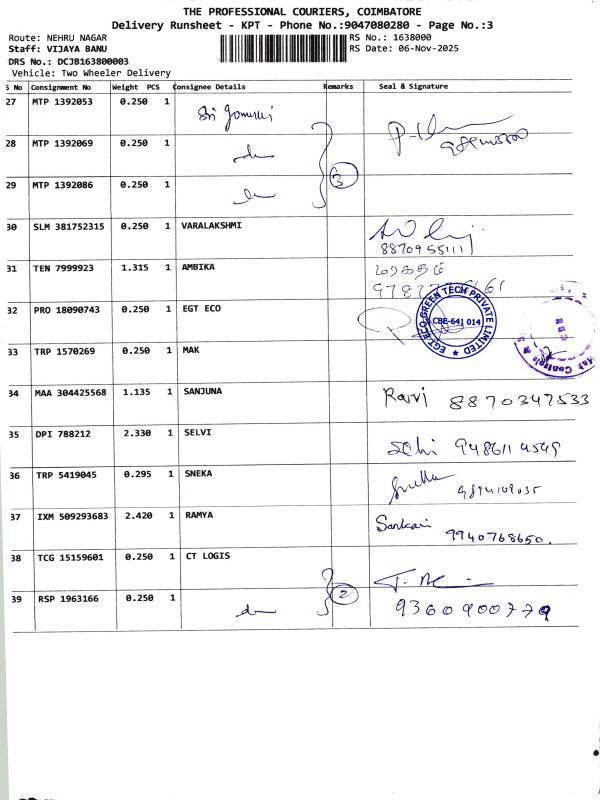 THE PROFESSIONAL COURIERS, COIMBATORE
Delivery Runsheet - KPT - Phone No.:9047080280 - Page No.:3
Route: NEHRU NAGAR
RS No.: 1638000
Staff: VIJAYA BANU
RS Date: 06-Nov-2025
DRS No.: DCJB163800003
Vehicle: Two Wheeler Delivery
S No Consignment No Weight PCS Consignee Details Remarks Seal & Signature
27 MTP 1392053 0.250 1 Sri
28 MTP 1392069 0.250 1
3
29 MTP 1392086 0.250 1
30 SLM 381752315 0.250 1 VARALAKSHMI
8870955111
31 TEN 7999923 1.315 1 AMBIKA
32 PRO 18090743 0.250 1 EGT ECO
EGT ECO GREEN TECH PRIVATE LIMITED
CBE-641 014
33 TRP 1570269 0.250 1 MAK
34 MAA 304425568 1.135 1 SANJUNA Ravi 8870347533
35 DPI 788212 2.330 1 SELVI Selvi 9486114549
36 TRP 5419045 0.295 1 SNEKA
37 IXM 509293683 2.420 1 RAMYA Sankari 9940768650.
38 TCG 15159601 0.250 1 CT LOGIS
39 RSP 1963166 0.250 1 2 9360900779